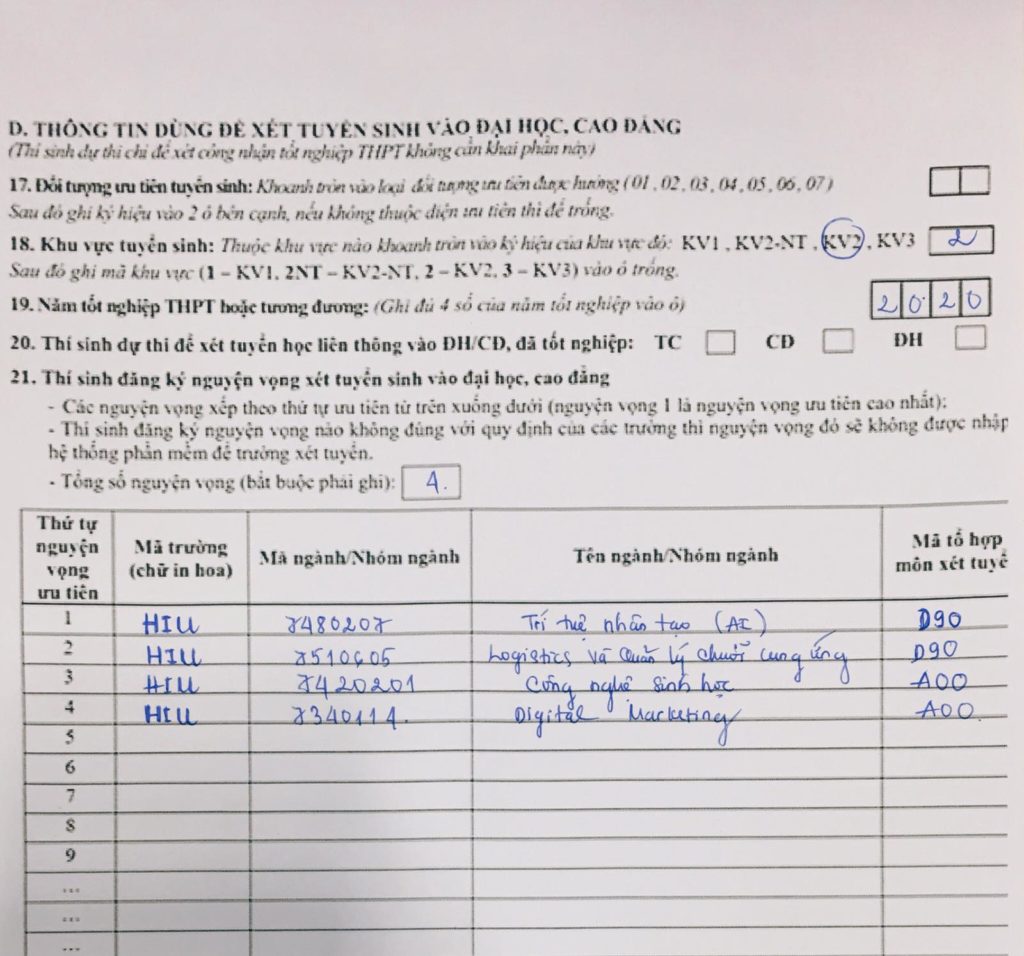 D. THÔNG TIN DÙNG ĐỂ XÉT TUYỂN SINH VÀO ĐẠI HỌC, CAO ĐẲNG
(Thí sinh dự thi chỉ để xét công nhận tốt nghiệp THPT không cần khai phần này)
17. Đối tượng ưu tiên tuyển sinh: Khoanh tròn vào loại đối tượng ưu tiên được hưởng (01 , 02 , 03, 04 , 05, 06, 07)
Sau đó ghi ký hiệu vào 2 ô bên cạnh, nếu không thuộc diện ưu tiên thì để trống.
18. Khu vực tuyển sinh: Thuộc khu vực nào khoanh tròn vào ký hiệu của khu vực đó: KV1 , KV2-NT , KV2 , KV3 2
Sau đó ghi mã khu vực (1 – KV1, 2NT – KV2-NT, 2 – KV2, 3 – KV3) vào ô trống.
19. Năm tốt nghiệp THPT hoặc tương đương: (Ghi đủ 4 số của năm tốt nghiệp vào ô) 2 0 2 0
20. Thí sinh dự thi để xét tuyển học liên thông vào ĐH/CĐ, đã tốt nghiệp: TC CĐ ĐH
21. Thí sinh đăng ký nguyện vọng xét tuyển sinh vào đại học, cao đẳng
- Các nguyện vọng xếp theo thứ tự ưu tiên từ trên xuống dưới (nguyện vọng 1 là nguyện vọng ưu tiên cao nhất);
- Thí sinh đăng ký nguyện vọng nào không đúng với quy định của các trường thì nguyện vọng đó sẽ không được nhập
hệ thống phần mềm để trường xét tuyển.
- Tổng số nguyện vọng (bắt buộc phải ghi): 4.
Thứ tự nguyện vọng ưu tiên Mã trường (chữ in hoa) Mã ngành/Nhóm ngành Tên ngành/Nhóm ngành Mã tổ hợp môn xét tuyể
1 HIU 7480207 Trí tuệ nhân tạo (AI) D90
2 HIU 7510605 Logistics và Quản lý chuỗi cung ứng D90
3 HIU 7420201 Công nghệ sinh học A00
4 HIU 7340114. Digital Marketing A00.
5
6
7
8
9
...
...
...